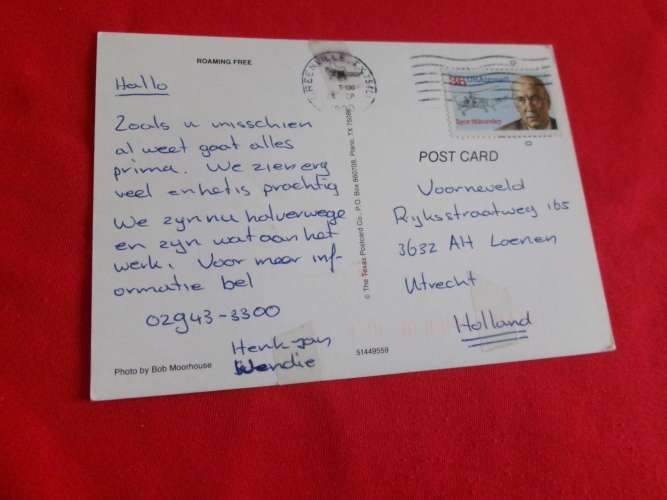 ROAMING FREE
Hallo
Zoals u misschien
al weet gaat alles
prima. We zien erg
veel en het is prachtig
We zyn nu halverwege
en zyn wat aan het
werk. Voor meer inf-
ormatie bel
02943-3300
Henk-jan
Wendie
Photo by Bob Moorhouse
© The Texas Postcard Co., P.O. Box 860708, Plano, TX 75086
51449559
GREENVILLE
USAirmail
Igor Sikorsky
POST CARD
Voorneveld
Ryksstraatweg 165
3632 AH Loenen
Utrecht
Holland